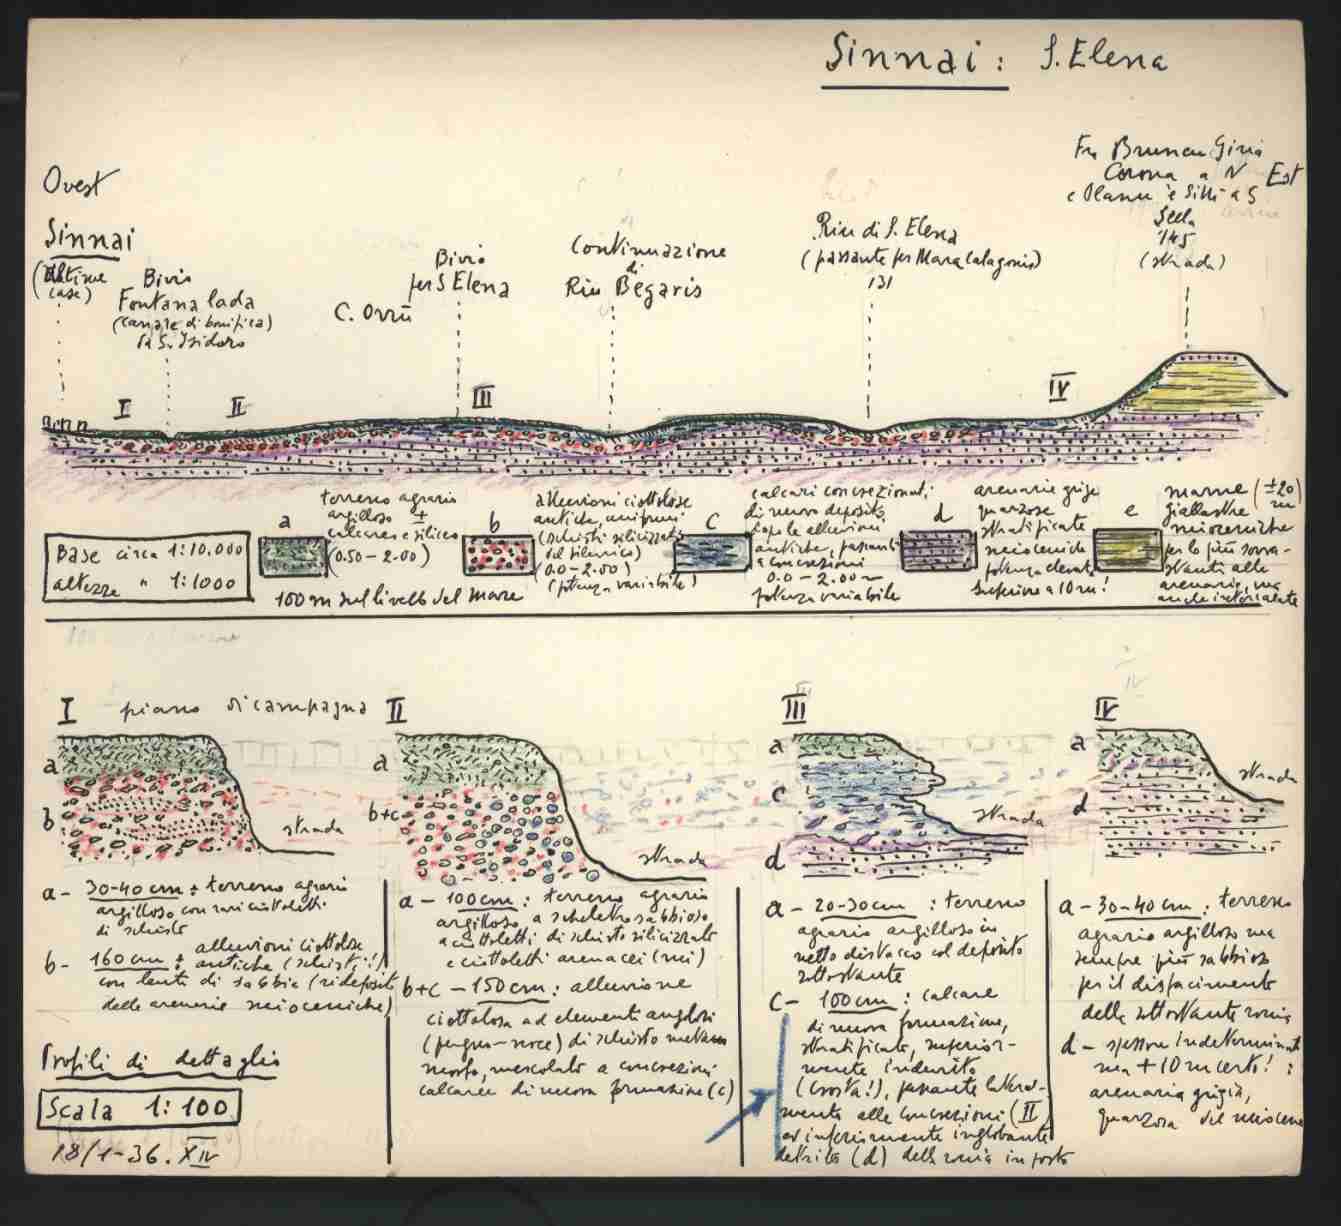 Sinnai: S. Elena
Ovest
Sinnai
(Ultime
case)
Bivio
Fontana lada
(canale di bonifica)
S. Isidoro
C. Orrù
Bivio
per S Elena
Continuazione
di
Riu Begaris
Riu di S. Elena
(passante per Mara Calagonis)
131
Fra Bruncu
Corona a N
a S
Sella
145
(strada)
Est
I
II
III
IV
Base circa 1:10.000
altezze " 1:1000
a
terreno agrario
argilloso ±
calcareo e siliceo
(0.50 - 2.00)
100 m sul livello del mare
b
alluvioni ciottolose
antiche,
(schisti silicizzati
del silurico)
(0.0 - 2.00)
(potenza variabile)
c
calcari concrezionati
di nuovo deposito
dopo le alluvioni
antiche, passanti
a concrezioni
0.0 - 2.00 m
potenza variabile
d
arenarie grige
quarzose
stratificate
mioceniche
potenza elevata
superiore a 10 m!
e
marne (±20 m)
giallastre
mioceniche
per lo più sovra-
stanti alle
arenarie, ma
anche
I
piano di campagna
II
III
IV
a
b
strada
a
b+c
strada
a
c
d
strada
a
d
strada
a - 30-40 cm: terreno agrario
argilloso con rari ciottoletti
di schisto
b - 160 cm: alluvioni ciottolose
antiche (schisti!)
con lenti di sabbia (rideposito
delle arenarie mioceniche)
Profili di dettaglio
Scala 1:100
18/1-36. XIV
a - 100 cm: terreno agrario
argilloso a scheletro sabbioso
a ciottoletti di schisto silicizzato
e ciottoletti arenacei
b+c - 150 cm: alluvione
ciottolosa ad elementi angolosi
(pugno-noce) di schisto metamorfo,
mescolato a concrezioni
calcaree di nuova formazione (c)
a - 20-30 cm: terreno
agrario argilloso in
netto distacco col deposito
sottostante
c - 100 cm: calcare
di nuova formazione,
stratificato, superior-
mente indurito
(crosta!), passante lateral-
mente alle concrezioni (II)
ed inferiormente inglobante
detrito (d) della roccia in posto
a - 30-40 cm: terreno
agrario argilloso ma
sempre più sabbioso
per il disfacimento
della sottostante roccia
d - spessore indeterminato
ma + 10 m certo!:
arenaria grigia,
quarzosa del miocene